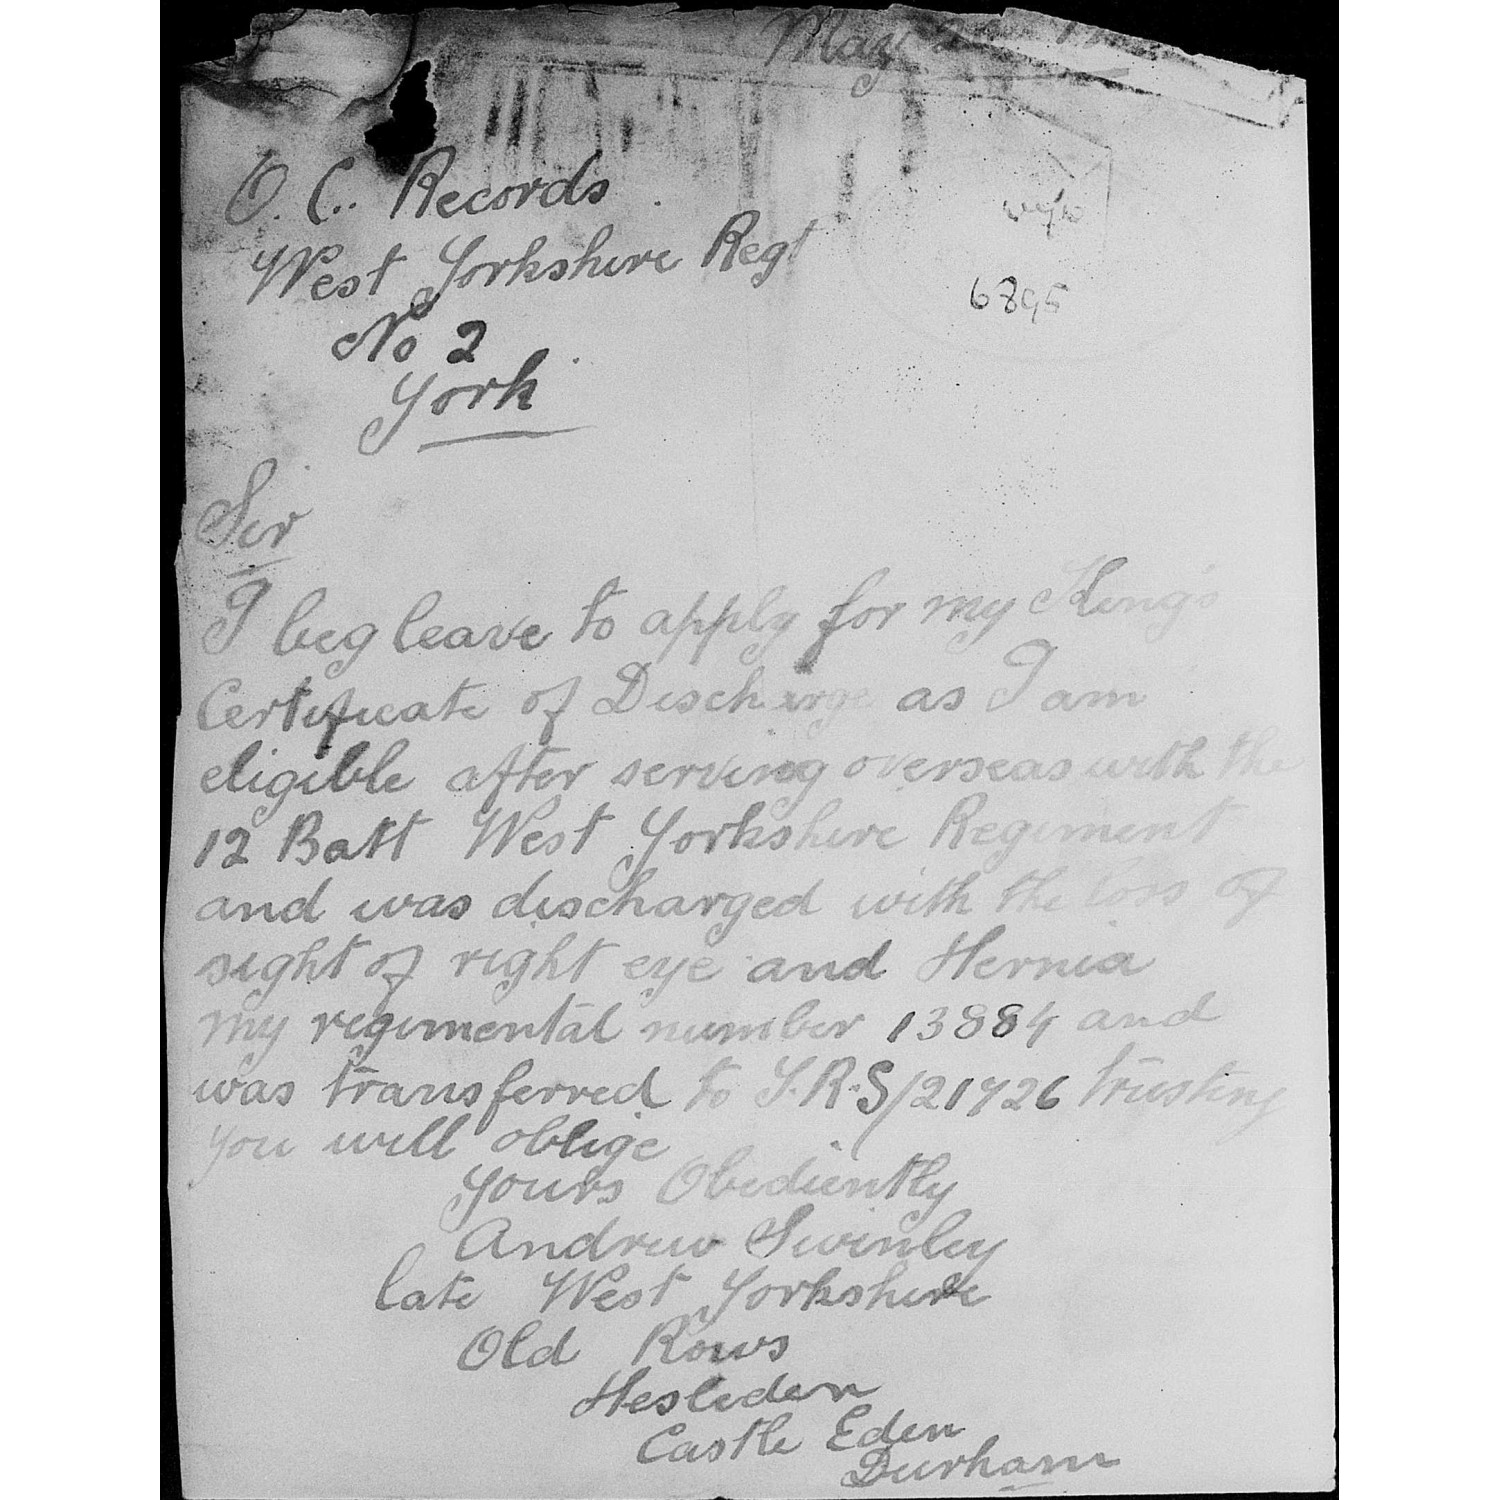 May
O. C.. Records
West Yorkshire Regt
No 2
York
6895
Sir
I beg leave to apply for my King's
Certificate of Discharge as I am
eligible after serving overseas with the
12 Batt West Yorkshire Regiment
and was discharged with the loss of
sight of right eye and Hernia
my regimental number 13884 and
was transferred to T.R.S/21726 trusting
you will oblige
Yours Obediently
Andrew Swinley
late West Yorkshire
Old Rows
Hesleden
Castle Eden
Durham